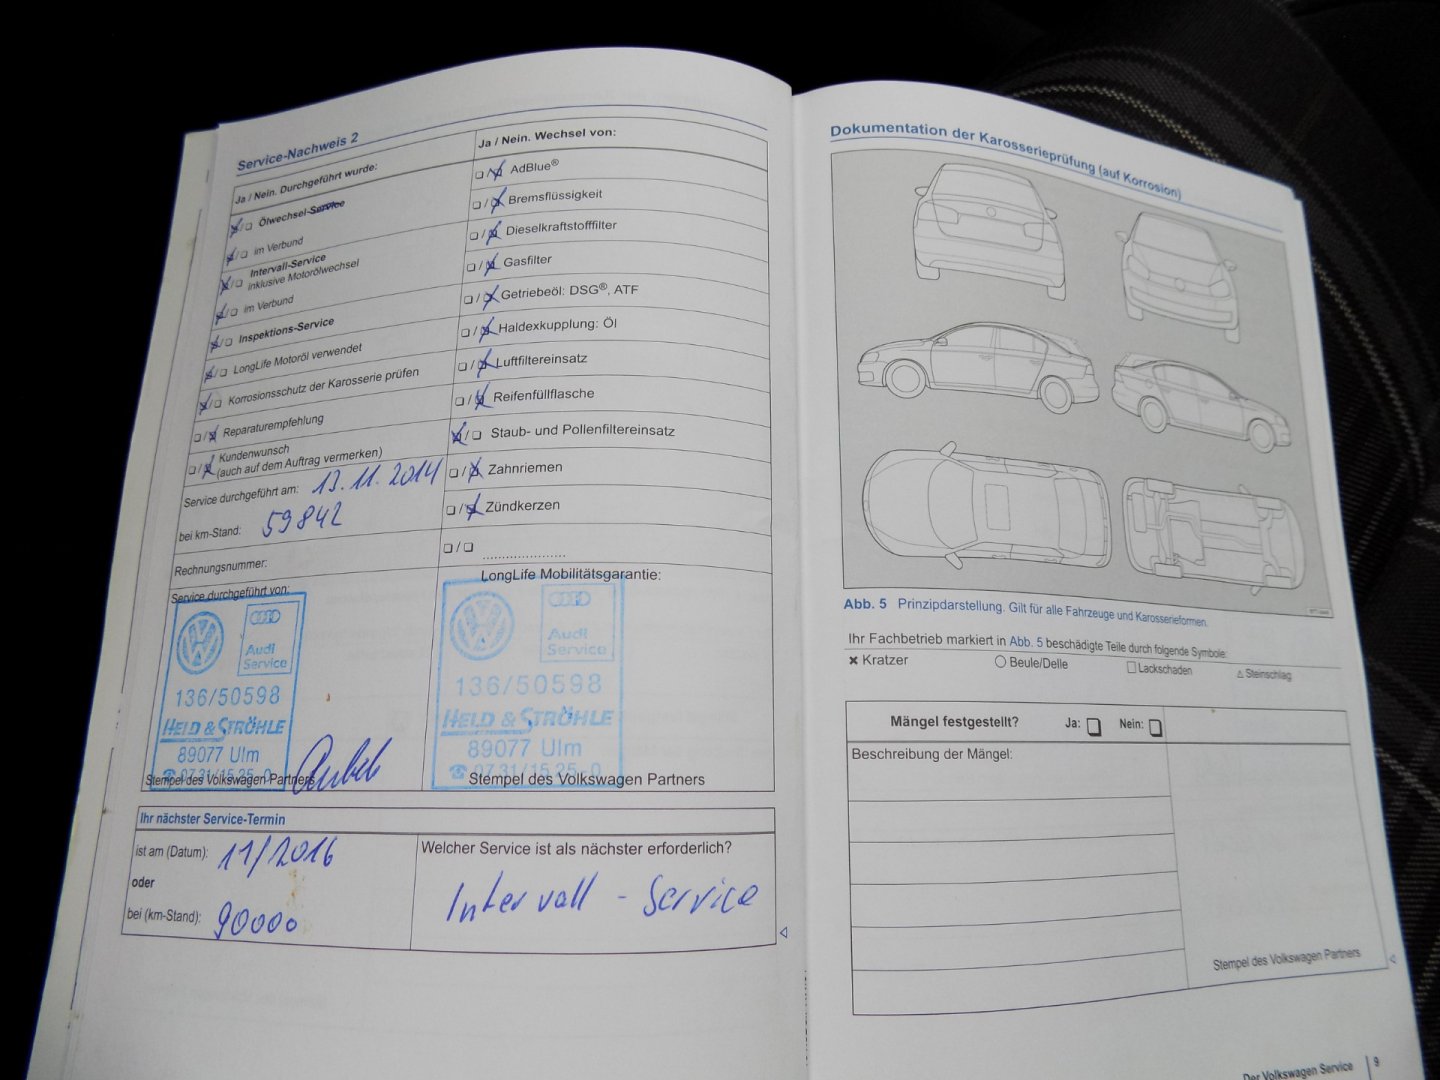 Service-Nachweis 2
Ja / Nein. Durchgeführt wurde:
Ölwechsel-Service
im Verbund
Intervall-Service
inklusive Motorölwechsel
im Verbund
Inspektions-Service
LongLife Motoröl verwendet
Korrosionsschutz der Karosserie prüfen
Reparaturempfehlung
Kundenwunsch
(auch auf dem Auftrag vermerken)
Service durchgeführt am: 13.11.2014
bei km-Stand: 59842
Rechnungsnummer:
Service durchgeführt von:
Audi
Service
136/50598
HELD & STRÖHLE
89077 Ulm
☎ 0731/1525-0
Stempel des Volkswagen Partners
Ja / Nein. Wechsel von:
AdBlue®
Bremsflüssigkeit
Dieselkraftstofffilter
Gasfilter
Getriebeöl: DSG®, ATF
Haldexkupplung: Öl
Luftfiltereinsatz
Reifenfüllflasche
Staub- und Pollenfiltereinsatz
Zahnriemen
Zündkerzen
LongLife Mobilitätsgarantie:
Audi
Service
136/50598
HELD & STRÖHLE
89077 Ulm
☎ 0731/1525-0
Stempel des Volkswagen Partners
Ihr nächster Service-Termin
ist am (Datum): 11/2016
oder
bei (km-Stand): 90000
Welcher Service ist als nächster erforderlich?
Intervall - Service
Dokumentation der Karosserieprüfung (auf Korrosion)
Abb. 5 Prinzipdarstellung. Gilt für alle Fahrzeuge und Karosserieformen.
Ihr Fachbetrieb markiert in Abb. 5 beschädigte Teile durch folgende Symbole:
× Kratzer ○ Beule/Delle □ Lackschaden △ Steinschlag
Mängel festgestellt? Ja: Nein:
Beschreibung der Mängel:
Stempel des Volkswagen Partners
Der Volkswagen Service 9